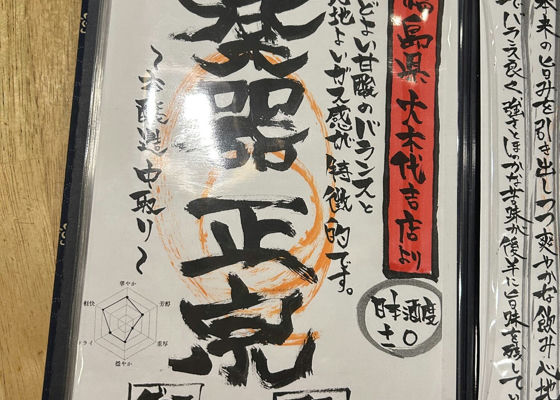 本来の旨みを引き出しつつ爽やかな飲み心地
でバランス良く 強さとほのかな苦味が後半に旨味を残してい
島県 大木代吉店より
日本酒度
±0
どよい甘酸のバランスと
地よいガス感が特徴的です。
楽器正宗
〜本醸造中取り〜
華やか
芳醇
重厚
穏やか
ライ
軽快